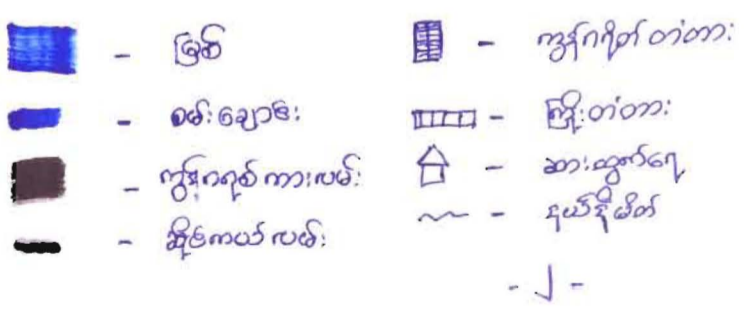 - မြစ်
- စမ်းချောင်း
- ကွန်ဂရစ်ကားလမ်း
- ဆိုင်ကယ်လမ်း
- ကွန်ဂရိတ်တံတား
- ကြိုးတံတား
- ဆားထွက်ရေ
- နယ်နိမိတ်
- ၂ -